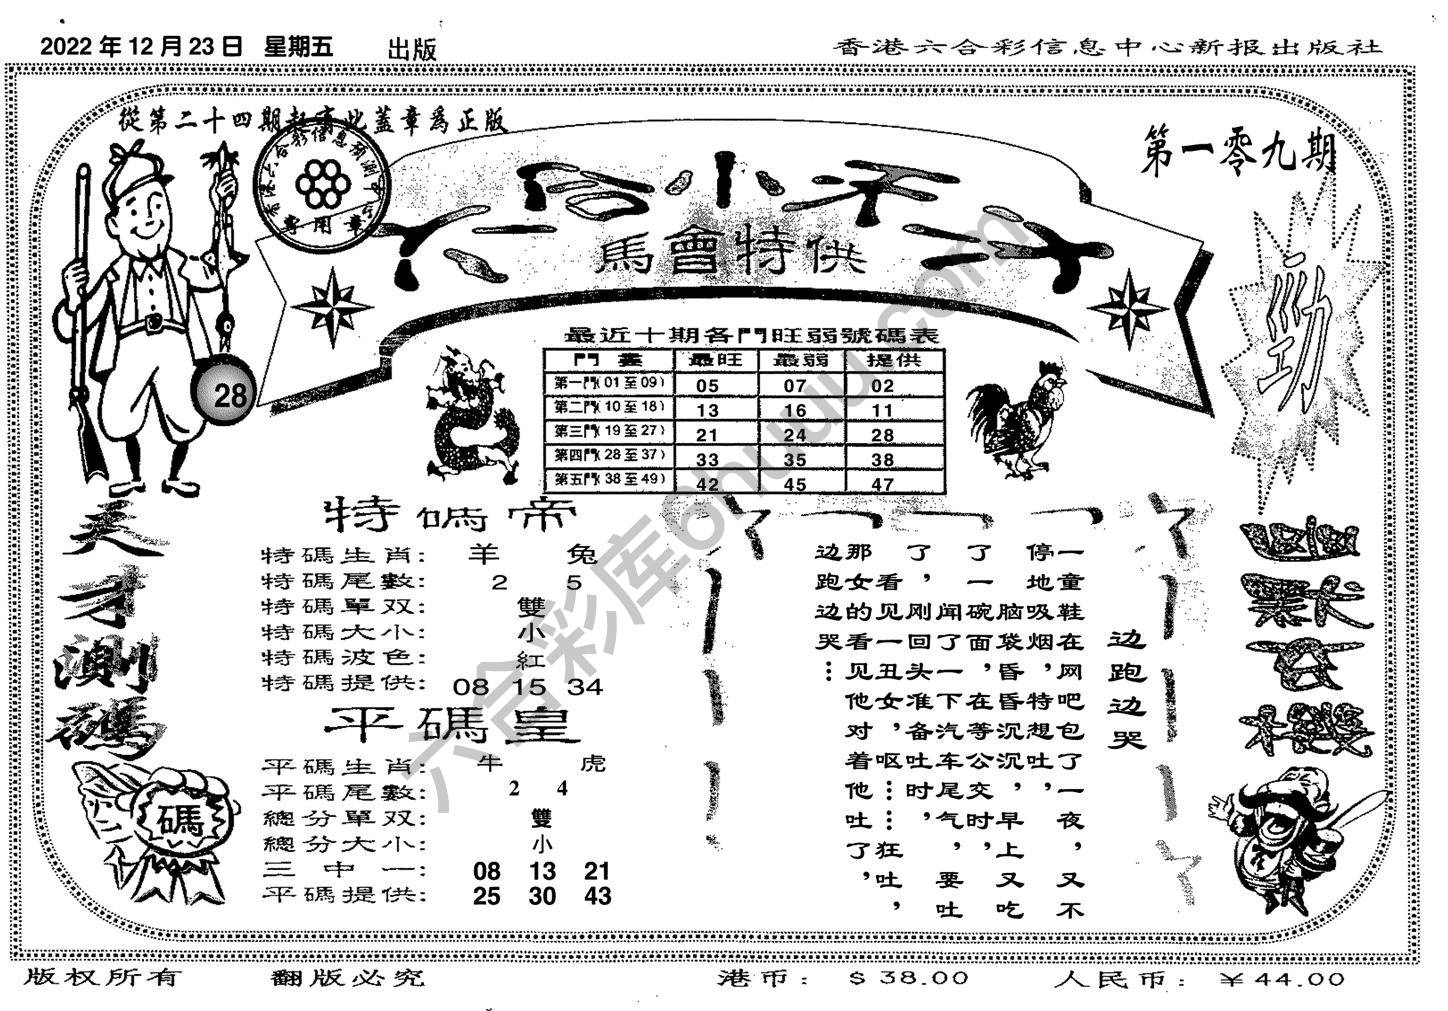 2022年12月23日 星期五 出版
香港六合彩信息中心新报出版社
從第二十四期起有此蓋章為正版
第一零九期
馬會特供
勁
28
最近十期各門旺弱號碼表
門 最旺 最弱 提供
第一門(01至09) 05 07 02
第二門(10至18) 13 16 11
第三門(19至27) 21 24 28
第四門(28至37) 33 35 38
第五門(38至49) 42 45 47
天才測碼
碼
特碼帝
特碼生肖: 羊 兔
特碼尾數: 2 5
特碼單双: 雙
特碼大小: 小
特碼波色: 紅
特碼提供: 08 15 34
平碼皇
平碼生肖: 牛 虎
平碼尾數: 2 4
總分單双: 雙
總分大小: 小
三中一: 08 13 21
平碼提供: 25 30 43
边跑边哭
一童鞋在网吧包了一夜，又不
停地吸烟，特想吐，
脑袋昏昏沉沉，早上又吃
了一碗面，在等公交时，
闻了一下汽车尾气，要吐
了，刚回头准备吐时，
看见一丑女，呕……狂吐，
那女的看见他对着他吐了，
边跑边哭…
六合彩库6huuu.com
版权所有 翻版必究 港币: $38.00 人民币: ￥44.00